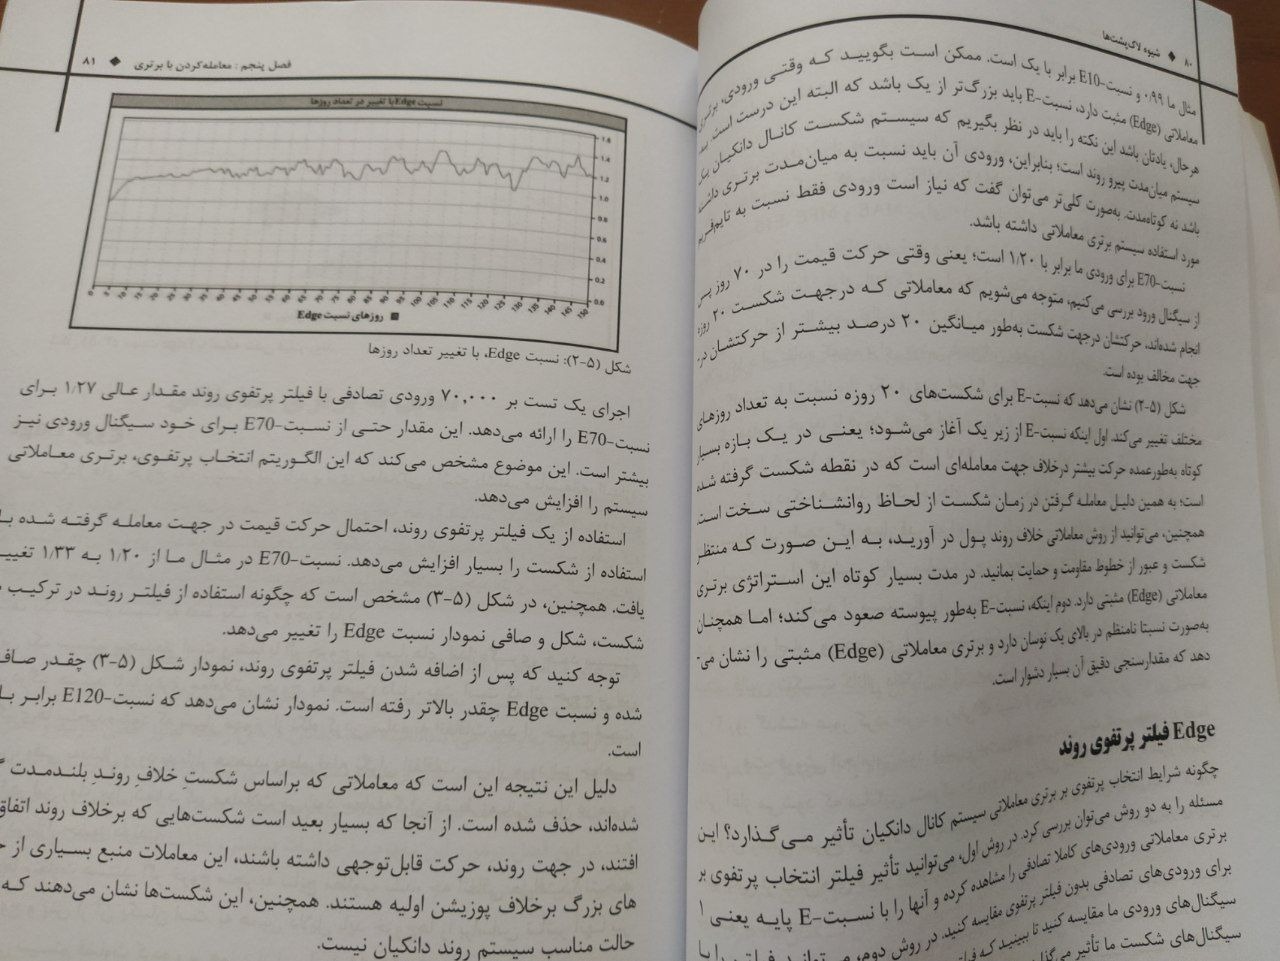 ۸۰ ◆ شیوه لاک‌پشت‌ها
مثال ما ۰/۹۹ و نسبت-E10 برابر با یک است. ممکن است بگویید که وقتی ورودی، برتری
معاملاتی (Edge) مثبت دارد، نسبت-E باید بزرگ‌تر از یک باشد که البته این درست است. به
هرحال، یادتان باشد این نکته را باید در نظر بگیریم که سیستم شکست کانال دانکیان یک
سیستم میان‌مدت پیرو روند است؛ بنابراین، ورودی آن باید نسبت به میان‌مدت برتری داشته
باشد نه کوتاه‌مدت. به‌صورت کلی‌تر می‌توان گفت که نیاز است ورودی فقط نسبت به تایم‌فریم
مورد استفاده سیستم برتری معاملاتی داشته باشد.
نسبت-E70 برای ورودی ما برابر با ۱/۲۰ است؛ یعنی وقتی حرکت قیمت را در ۷۰ روز پس
از سیگنال ورود بررسی می‌کنیم، متوجه می‌شویم که معاملاتی که درجهت شکست ۲۰ روزه
انجام شده‌اند، حرکتشان درجهت شکست به‌طور میانگین ۲۰ درصد بیشتر از حرکتشان در
جهت مخالف بوده است.
شکل (۵-۲) نشان می‌دهد که نسبت-E برای شکست‌های ۲۰ روزه نسبت به تعداد روزهای
مختلف تغییر می‌کند. اول اینکه نسبت-E از زیر یک آغاز می‌شود؛ یعنی در یک بازه بسیار
کوتاه به‌طورعمده حرکت بیشتر درخلاف جهت معامله‌ای است که در نقطه شکست گرفته شده
است؛ به همین دلیل معامله گرفتن در زمان شکست از لحاظ روانشناختی سخت است.
همچنین، می‌توانید از روش معاملاتی خلاف روند پول در آورید، به این صورت که منتظر
شکست و عبور از خطوط مقاومت و حمایت بمانید. در مدت بسیار کوتاه این استراتژی برتری
معاملاتی (Edge) مثبتی دارد. دوم اینکه، نسبت-E به‌طور پیوسته صعود می‌کند؛ اما همچنان
به‌صورت نسبتا نامنظم در بالای یک نوسان دارد و برتری معاملاتی (Edge) مثبتی را نشان می‌-
دهد که مقدارسنجی دقیق آن بسیار دشوار است.
Edge فیلتر پرتفوی روند
چگونه شرایط انتخاب پرتفوی بر برتری معاملاتی سیستم کانال دانکیان تأثیر می‌گذارد؟ این
مسئله را به دو روش می‌توان بررسی کرد. در روش اول، می‌توانید تأثیر فیلتر انتخاب پرتفوی بر
برتری معاملاتی ورودی‌های کاملا تصادفی را مشاهده کرده و آنها را با نسبت-E پایه یعنی ۱
برای ورودی‌های تصادفی بدون فیلتر پرتفوی مقایسه کنید. در روش دوم،
سیگنال‌های ورودی ما مقایسه کنید تا ببینید که
سیگنال‌های شکست ما تأثیر
فصل پنجم : معامله‌کردن با برتری ◆ ۸۱
نسبت Edge با تغییر در تعداد روزها
1.6
1.4
1.2
1.0
0.8
0.6
0.4
0.2
0.0
0 5 10 15 20 25 30 35 40 45 50 55 60 65 70 75 80 85 90 95 100 105 110 115 120 125 130 135 140 145 150
■ روزهای نسبت Edge
شکل (۵-۲): نسبت Edge، با تغییر تعداد روزها
اجرای یک تست بر ۷۰,۰۰۰ ورودی تصادفی با فیلتر پرتفوی روند مقدار عالی ۱/۲۷ برای
نسبت-E70 را ارائه می‌دهد. این مقدار حتی از نسبت-E70 برای خود سیگنال ورودی نیز
بیشتر است. این موضوع مشخص می‌کند که این الگوریتم انتخاب پرتفوی، برتری معاملاتی
سیستم را افزایش می‌دهد.
استفاده از یک فیلتر پرتفوی روند، احتمال حرکت قیمت در جهت معامله گرفته شده با
استفاده از شکست را بسیار افزایش می‌دهد. نسبت-E70 در مثال ما از ۱/۲۰ به ۱/۳۳ تغییر
یافت. همچنین، در شکل (۵-۳) مشخص است که چگونه استفاده از فیلتر روند در ترکیب
شکست، شکل و صافی نمودار نسبت Edge را تغییر می‌دهد.
توجه کنید که پس از اضافه شدن فیلتر پرتفوی روند، نمودار شکل (۵-۳) چقدر صاف
شده و نسبت Edge چقدر بالاتر رفته است. نمودار نشان می‌دهد که نسبت-E120 برابر با
است.
دلیل این نتیجه این است که معاملاتی که براساس شکستِ خلافِ روندِ بلندمدت
شده‌اند، حذف شده است. از آنجا که بسیار بعید است شکست‌هایی که برخلاف روند اتفاق
افتند، در جهت روند، حرکت قابل‌توجهی داشته باشند، این معاملات منبع بسیاری از
های بزرگ برخلاف پوزیشن اولیه هستند. همچنین، این شکست‌ها نشان می‌دهند که
حالت مناسب سیستم روند دانکیان نیست.